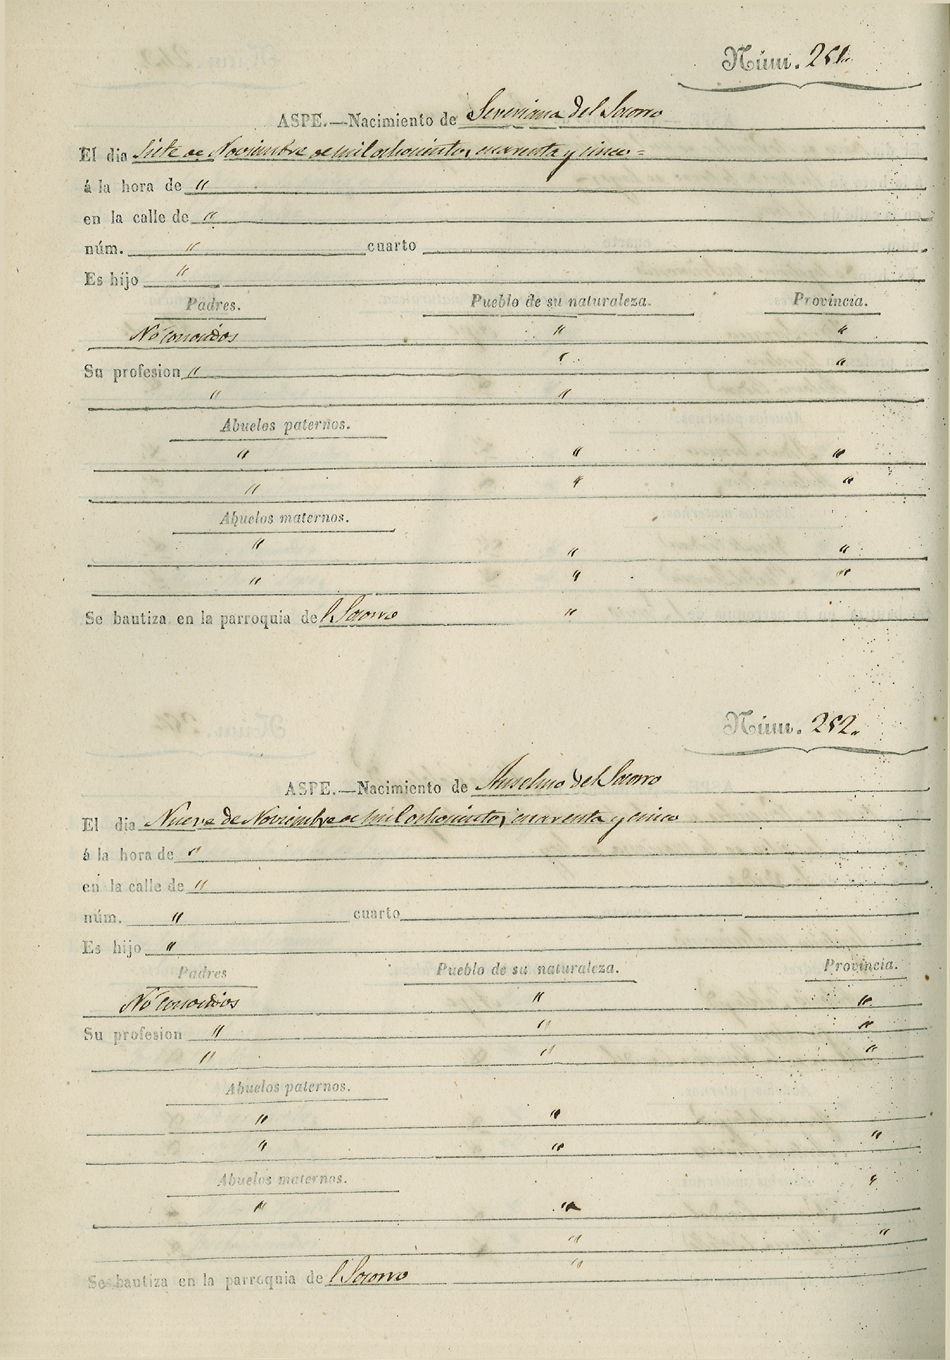 Núm. 251.
ASPE.—Nacimiento de Severiana del Socorro
El dia Siete de Noviembre de mil ochocientos, cuarenta y cinco=
á la hora de "
en la calle de "
núm. " cuarto
Es hijo "
Padres. Pueblo de su naturaleza. Provincia.
No conocidos " "
Su profesion " " "
" "
Abuelos paternos.
" " "
" " "
Abuelos maternos.
" " "
" " "
Se bautiza en la parroquia del Socorro "
Núm. 252.
ASPE.—Nacimiento de Anselmo del Socorro
El dia Nueve de Noviembre de mil ochocientos, cuarenta y cinco
á la hora de "
en la calle de "
núm. " cuarto
Es hijo "
Padres Pueblo de su naturaleza. Provincia.
No conocidos " "
Su profesion " " "
" " "
Abuelos paternos.
" "
" " "
Abuelos maternos. "
" "
" "
Se bautiza en la parroquia del Socorro "